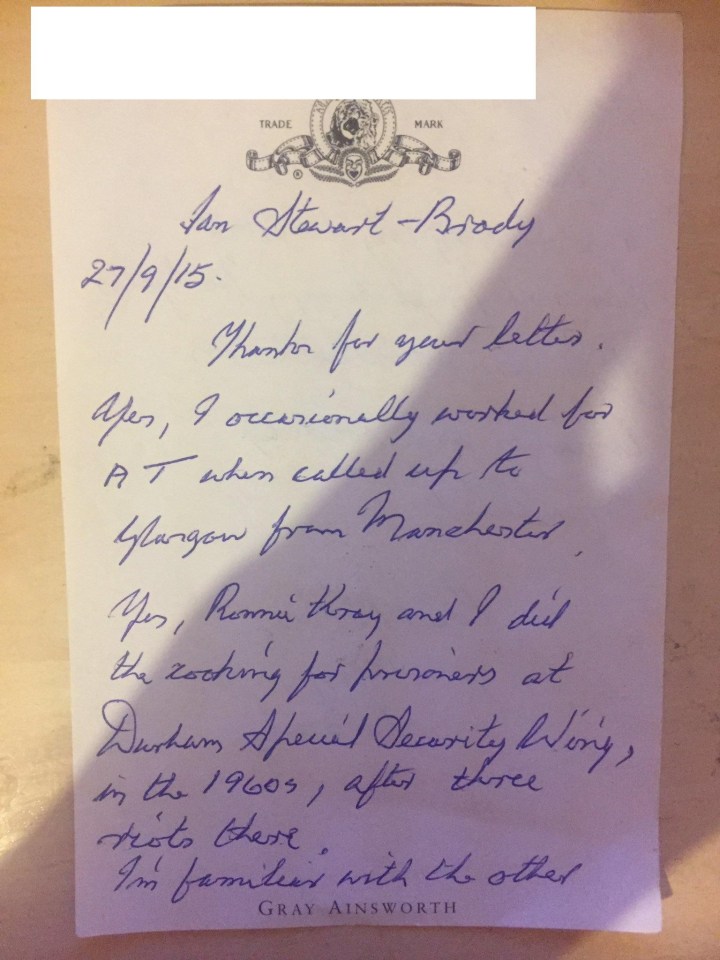 TRADE MARK
®
Ian Stewart-Brady
27/9/15.
Thanks for your letter.
Yes, I occasionally worked for
A T when called up to
Glasgow from Manchester.
Yes, Ronnie Kray and I did
the cooking for prisoners at
Durham Special Security Wing,
in the 1960s, after three
riots there.
I'm familiar with the other
GRAY AINSWORTH